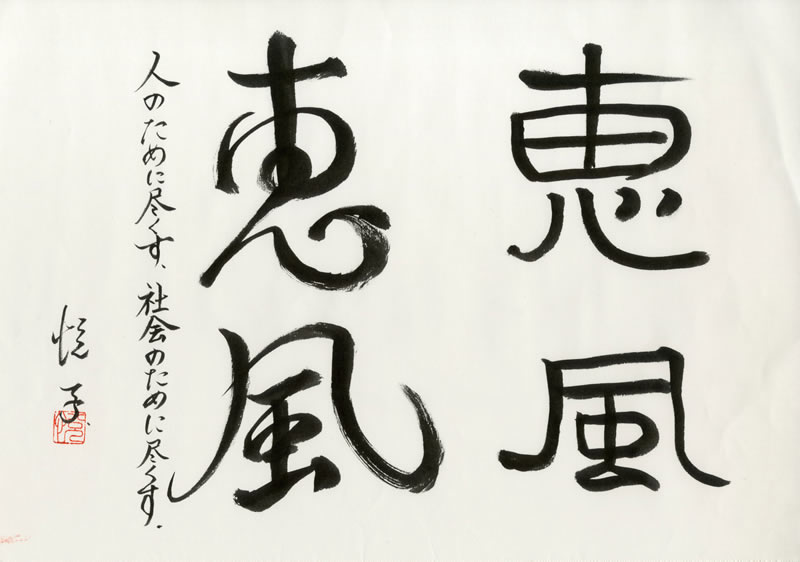 恵風
恵風
人のために尽くす、社会のために尽くす.
悦子